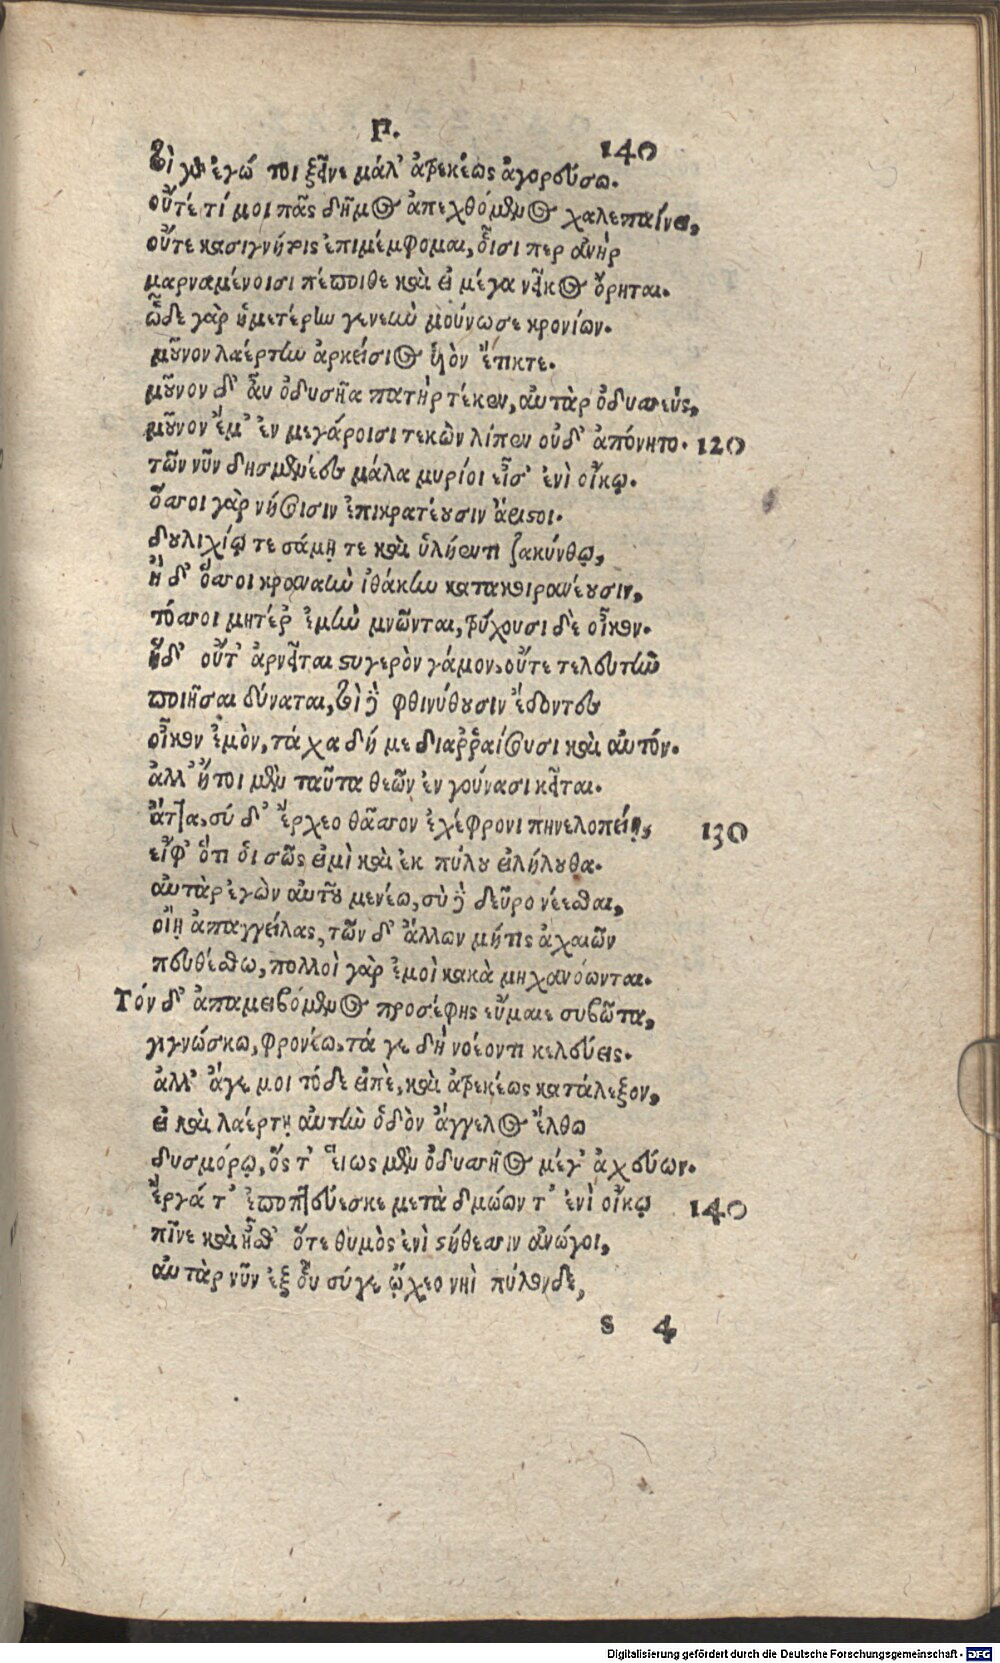 Π.
140
τοὶ γὰρ ἐγώ τοι ξεῖνε μάλ' ἀτρεκέως ἀγορεύσω.
οὔτέ τί μοι πᾶς δῆμος ἀπεχθόμενος χαλεπαίνει,
οὔτε κασιγνήτοις ἐπιμέμφομαι, οἷσι περ ἀνὴρ
μαρναμένοισι πέποιθε καὶ εἰ μέγα νεῖκος ὄρηται.
ὧδε γὰρ ἡμετέρην γενεὴν μούνωσε κρονίων.
μοῦνον λαέρτην ἀρκείσιος υἱὸν ἔτικτε.
μοῦνον δ' αὖ ὀδυσῆα πατὴρ τέκεν, αὐτὰρ ὀδυσσεὺς,
μοῦνον ἔμ' ἐν μεγάροισι τεκὼν λίπεν οὐδ' ἀπόνητο. 120
τῶν νῦν δησμενέες μάλα μυρίοι εἶσ' ἐνὶ οἴκῳ.
ὅσσοι γὰρ νήσοισιν ἐπικρατέουσιν ἄριστοι.
δουλιχίῳ τε σάμῃ τε καὶ ὑλήεντι ζακύνθῳ,
ἠ δ' ὅσσοι κραναὴν ἰθάκην κατακοιρανέουσιν,
τόσσοι μητέρ' ἐμὴν μνῶνται, τρύχουσι δὲ οἶκον.
ἡ δ' οὔτ' ἀρνεῖται στυγερὸν γάμον, οὔτε τελευτὴν
ποιῆσαι δύναται, τοὶ δὲ φθινύθουσιν ἔδοντες
οἶκον ἐμὸν, τάχα δή με διαῤῥαίσουσι καὶ αὐτόν.
ἀλλ' ἤτοι μὲν ταῦτα θεῶν ἐν γούνασι κεῖται.
ἄττα, σύ δ' ἔρχεο θᾶσσον ἐχέφρονι πηνελοπείῃ, 130
εἴφ' ὅτι οἱ σῶς εἰμὶ καὶ ἐκ πύλου εἰλήλουθα.
αὐτὰρ ἐγὼν αὐτοῦ μενέω, σὺ δὲ δεῦρο νέεσθαι,
οἴῃ ἀπαγγείλας, τῶν δ' ἄλλων μήτις ἀχαιῶν
πευθέσθω, πολλοὶ γὰρ ἐμοὶ κακὰ μηχανόωνται.
Τόν δ' ἀπαμειβόμενος προσέφης εὔμαιε συβῶτα,
γιγνώσκω, φρονέω, τά γε δὴ νοέοντι κελεύεις.
ἀλλ' ἄγε μοι τόδε εἰπὲ, καὶ ἀτρεκέως κατάλεξον,
εἰ καὶ λαέρτῃ αὐτὴν ὁδὸν ἄγγελος ἔλθω
δυσμόρῳ, ὅς τ' εἵως μὲν ὀδυσσῆος μέγ' ἀχεύων.
ἔργά τ' ἐποπτεύεσκε μετὰ δμώων τ' ἐνὶ οἴκῳ 140
πῖνε καὶ ἦσθ' ὅτε θυμὸς ἐνὶ στήθεσσιν ἀνώγοι,
αὐτὰρ νῦν ἐξ οὗ σύγε ᾤχεο νηὶ πύλονδε,
s 4
Digitalisierung gefördert durch die Deutsche Forschungsgemeinschaft - DFG